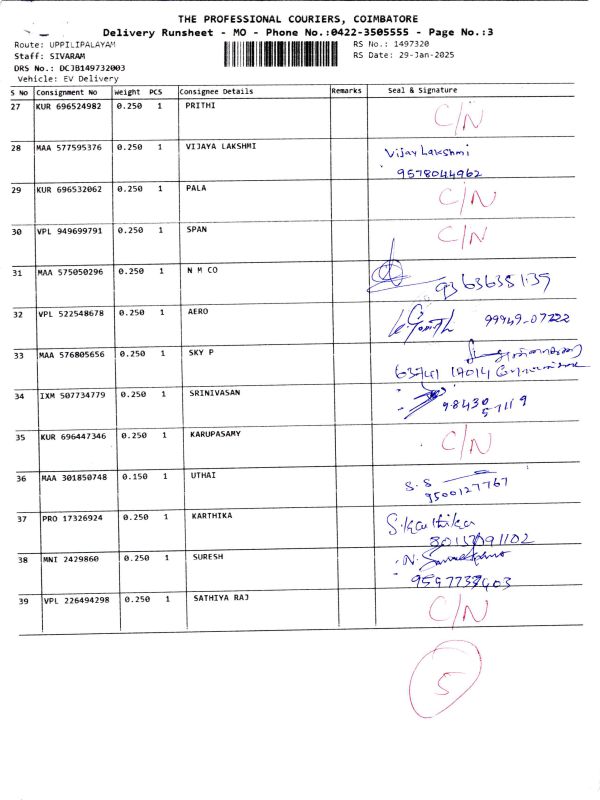 THE PROFESSIONAL COURIERS, COIMBATORE
Delivery Runsheet - MO - Phone No.:0422-3505555 - Page No.:3
Route: UPPILIPALAYAM RS No.: 1497320
Staff: SIVARAM RS Date: 29-Jan-2025
DRS No.: DCJB149732003
Vehicle: EV Delivery
S No Consignment No Weight PCS Consignee Details Remarks Seal & Signature
27 KUR 696524982 0.250 1 PRITHI C/N
28 MAA 577595376 0.250 1 VIJAYA LAKSHMI Vijay Lakshmi
9578044962
29 KUR 696532062 0.250 1 PALA C/N
30 VPL 949699791 0.250 1 SPAN C/N
31 MAA 575050296 0.250 1 N M CO
32 VPL 522548678 0.250 1 AERO 99949-07222
33 MAA 576805656 0.250 1 SKY P
63741 17014
34 IXM 507734779 0.250 1 SRINIVASAN 98430
57119
35 KUR 696447346 0.250 1 KARUPASAMY C/N
36 MAA 301850748 0.150 1 UTHAI S.S
9500127767
37 PRO 17326924 0.250 1 KARTHIKA S.Karthika
38 MNI 2429860 0.250 1 SURESH N.
39 VPL 226494298 0.250 1 SATHIYA RAJ C/N
5